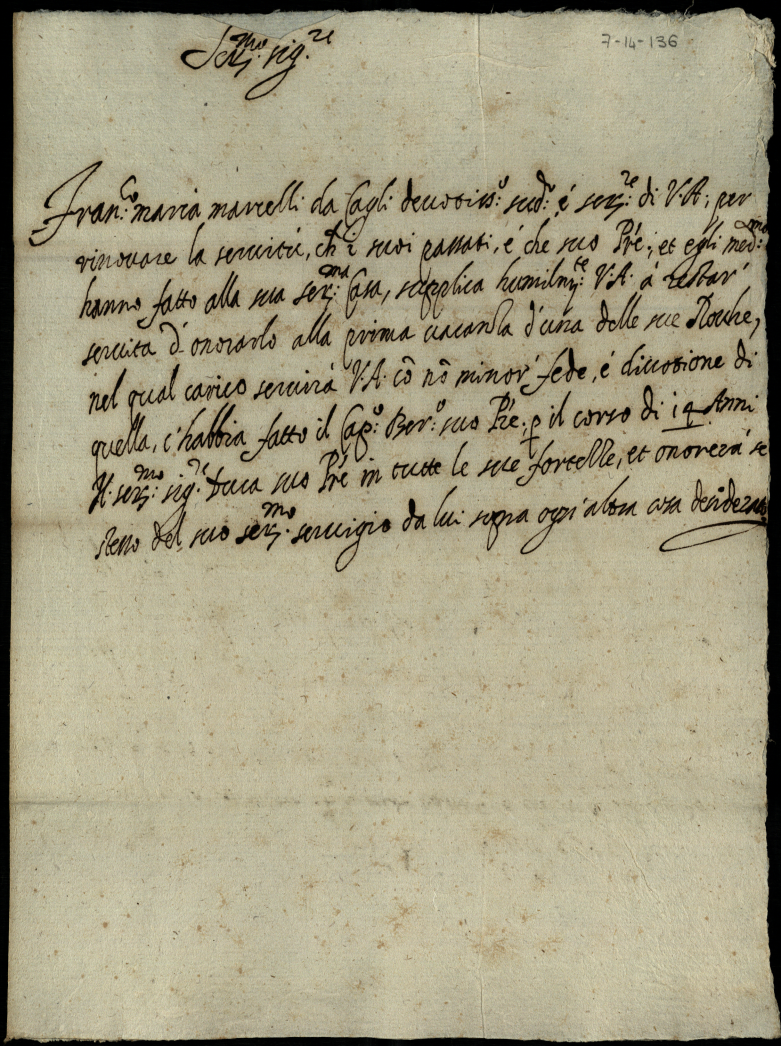 7-14-136
Ser.mo sig.re
Fran.co maria marcelli da Cagli deuotiss.o sud.o é ser.re di V.A; per
rinouare la seruitù, ch' i suoi passati, é che suo Pr̃e, et egli med.mo
hanno fatto alla sua ser.ma Casa, supplica humilm.te V.A. á restar
seruita d'onorarlo alla prima uacanza d'una delle sue Rocche,
nel qual carico seruirà V.A. cõ nõ minor fede, é diuotione di
quella, c'habbia fatto il Cap.o Ber.o suo Pr̃e, ꝑ il corso di 14 Anni
Il ser.mo sig.r Duca suo Pr̃e in tutte le sue fortezze, et onorerà se
stesso del suo ser.mo seruigio da lui sopra ogn'altra cosa desiderato